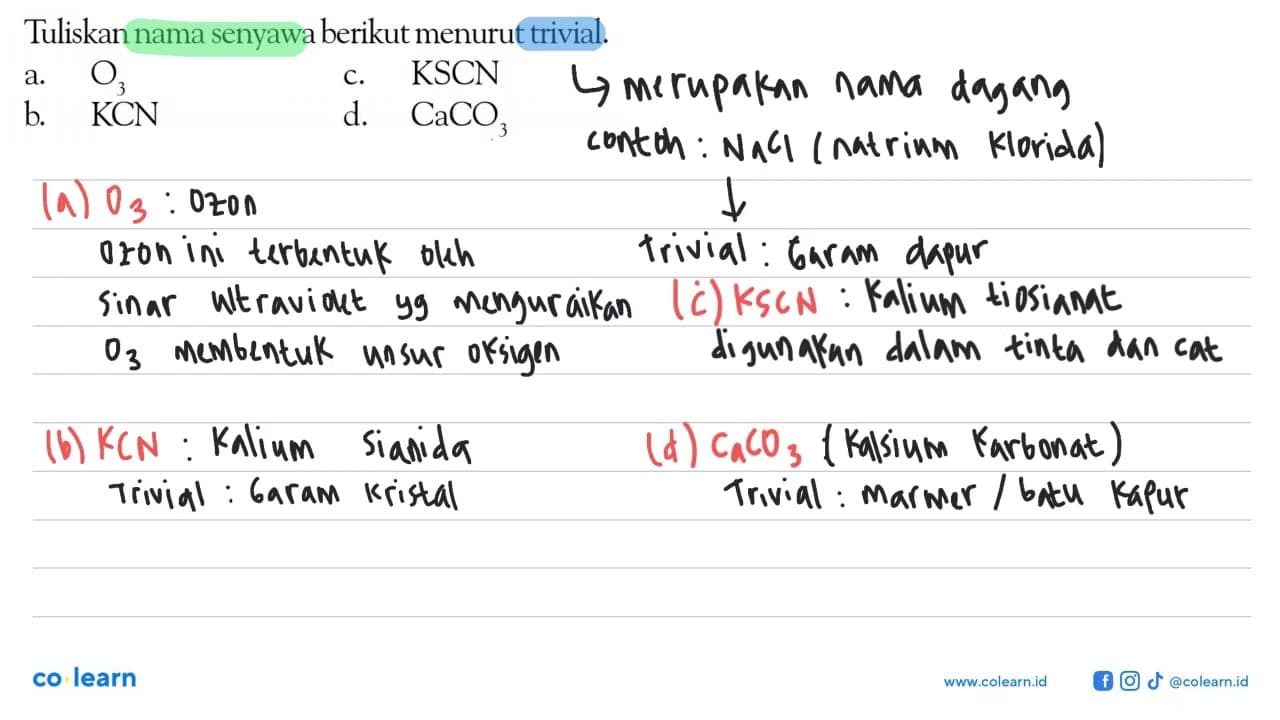 Tuliskan nama senyawa berikut menurut trivial.
a. O3 c. KSCN
b. KCN d. CaCO3
↳ merupakan nama dagang
contoh : NaCl (natrium klorida)
↓
trivial : Garam dapur
(a) O3 : Ozon
ozon ini terbentuk oleh
sinar ultraviolet yg menguraikan
O3 membentuk unsur oksigen
(c) KSCN : Kalium tiosianat
digunakan dalam tinta dan cat
(b) KCN : Kalium sianida
Trivial : Garam kristal
(d) CaCO3 (Kalsium Karbonat)
Trivial : Marmer / batu kapur
co learn
www.colearn.id @colearn.id